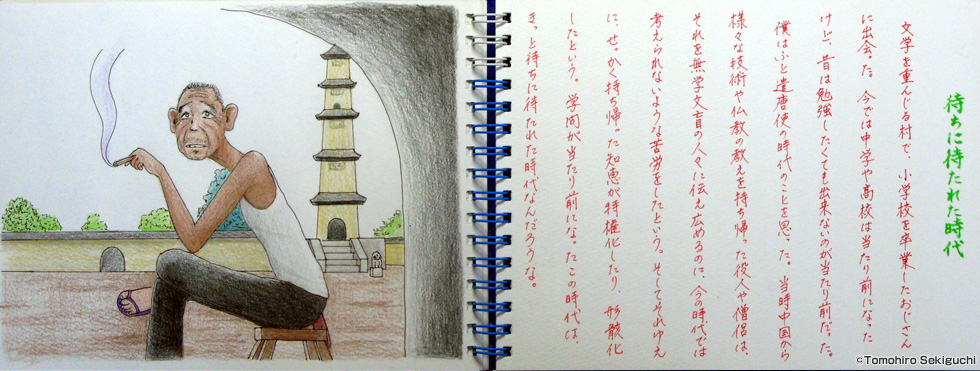 待ちに待たれた時代
文学を重んじる村で、小学校を卒業したおじさん
に出会った。今では中学や高校は当たり前になった
けど、昔は勉強したくても出来ないのが当たり前だった。
僕はふと遣唐使の時代のことを思った。当時中国から
様々な技術や仏教の教えを持ち帰った役人や僧侶は、
それを無学文盲の人々に伝え広めるのに、今の時代では
考えられないような苦労をしたという。そしてそれゆえ
に、せっかく持ち帰った知恵が特権化したり、形骸化
したという。学問が当たり前になったこの時代は、
きっと待ちに待たれた時代なんだろうな。
©Tomohiro Sekiguchi